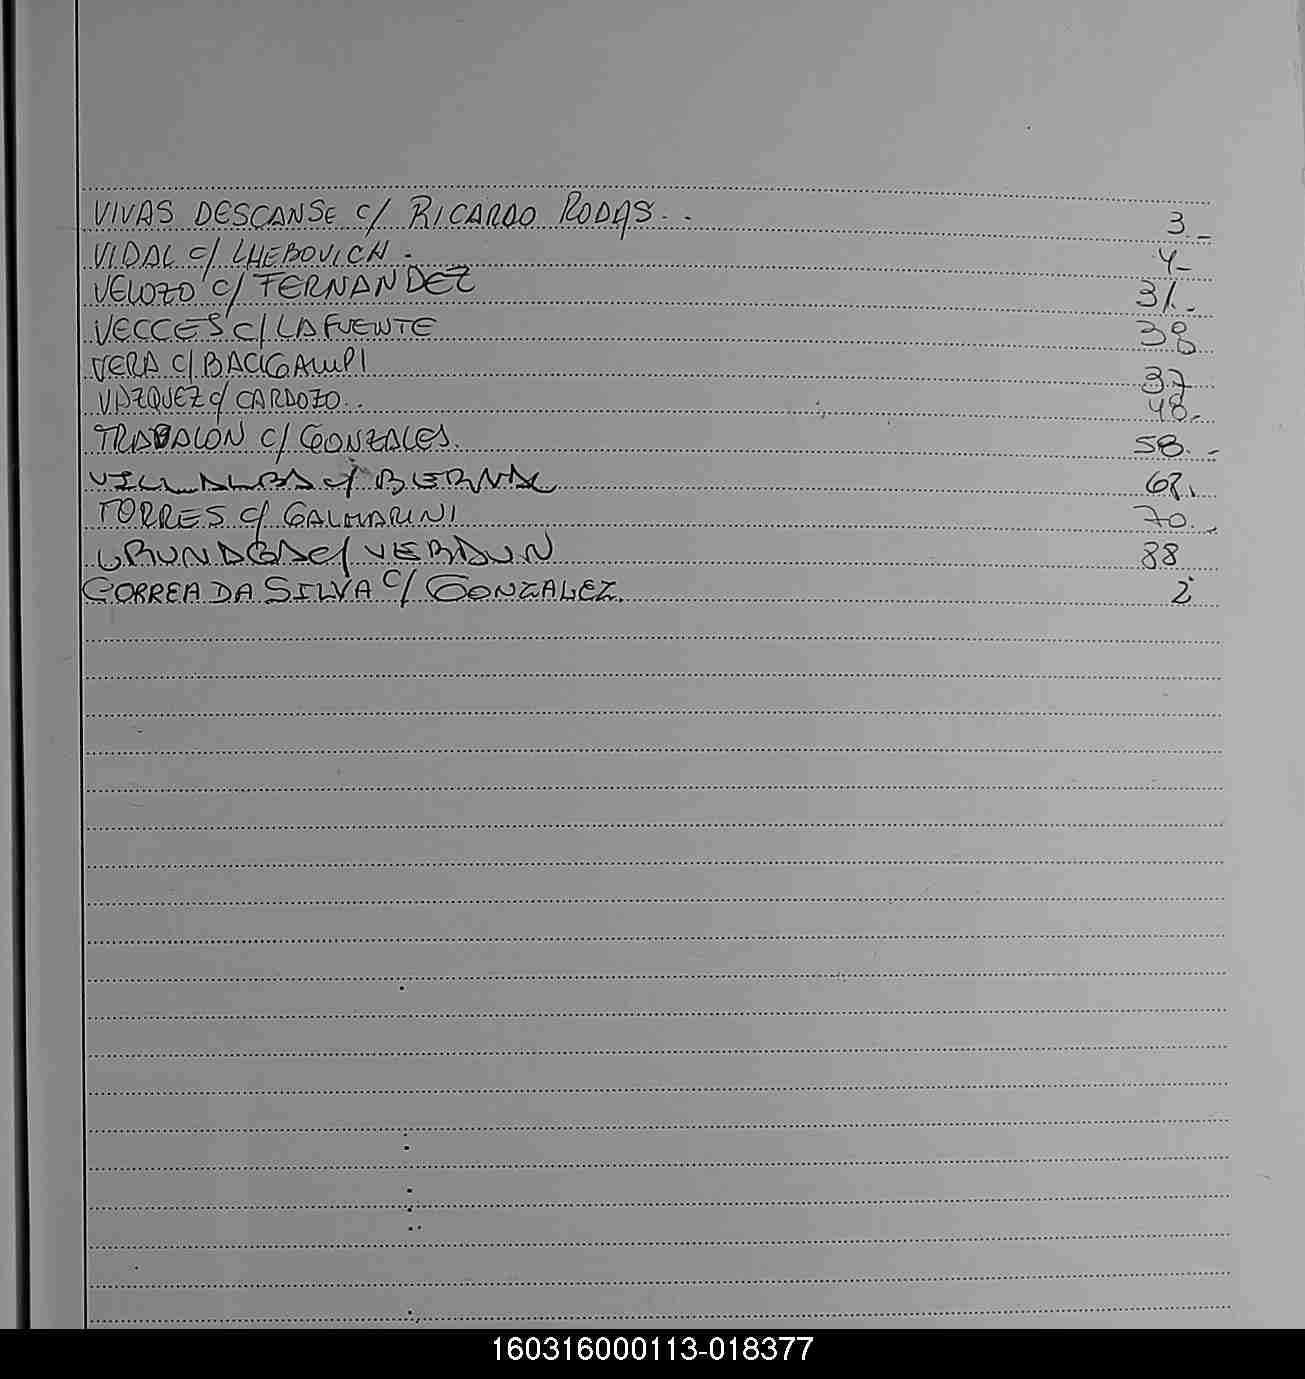 VIVAS DESCANSE C/ RICARDO RODAS. . 3.-
VIDAL C/ LHEBOVICH. 4-
VELOZO C/ FERNANDEZ 31.-
VECCES C/ LAFUENTE 38
VERA C/ BACIGALUPI 37
VAZQUEZ C/ CARDOZO.. 48.-
TRABALON C/ GONZALES. 58.-
VILLALBA C/ BERNAL 62.
TORRES C/ GALMARINI 70.-
C/ VERDUN 88
CORREA DA SILVA C/ GONZALEZ. 2
160316000113-018377